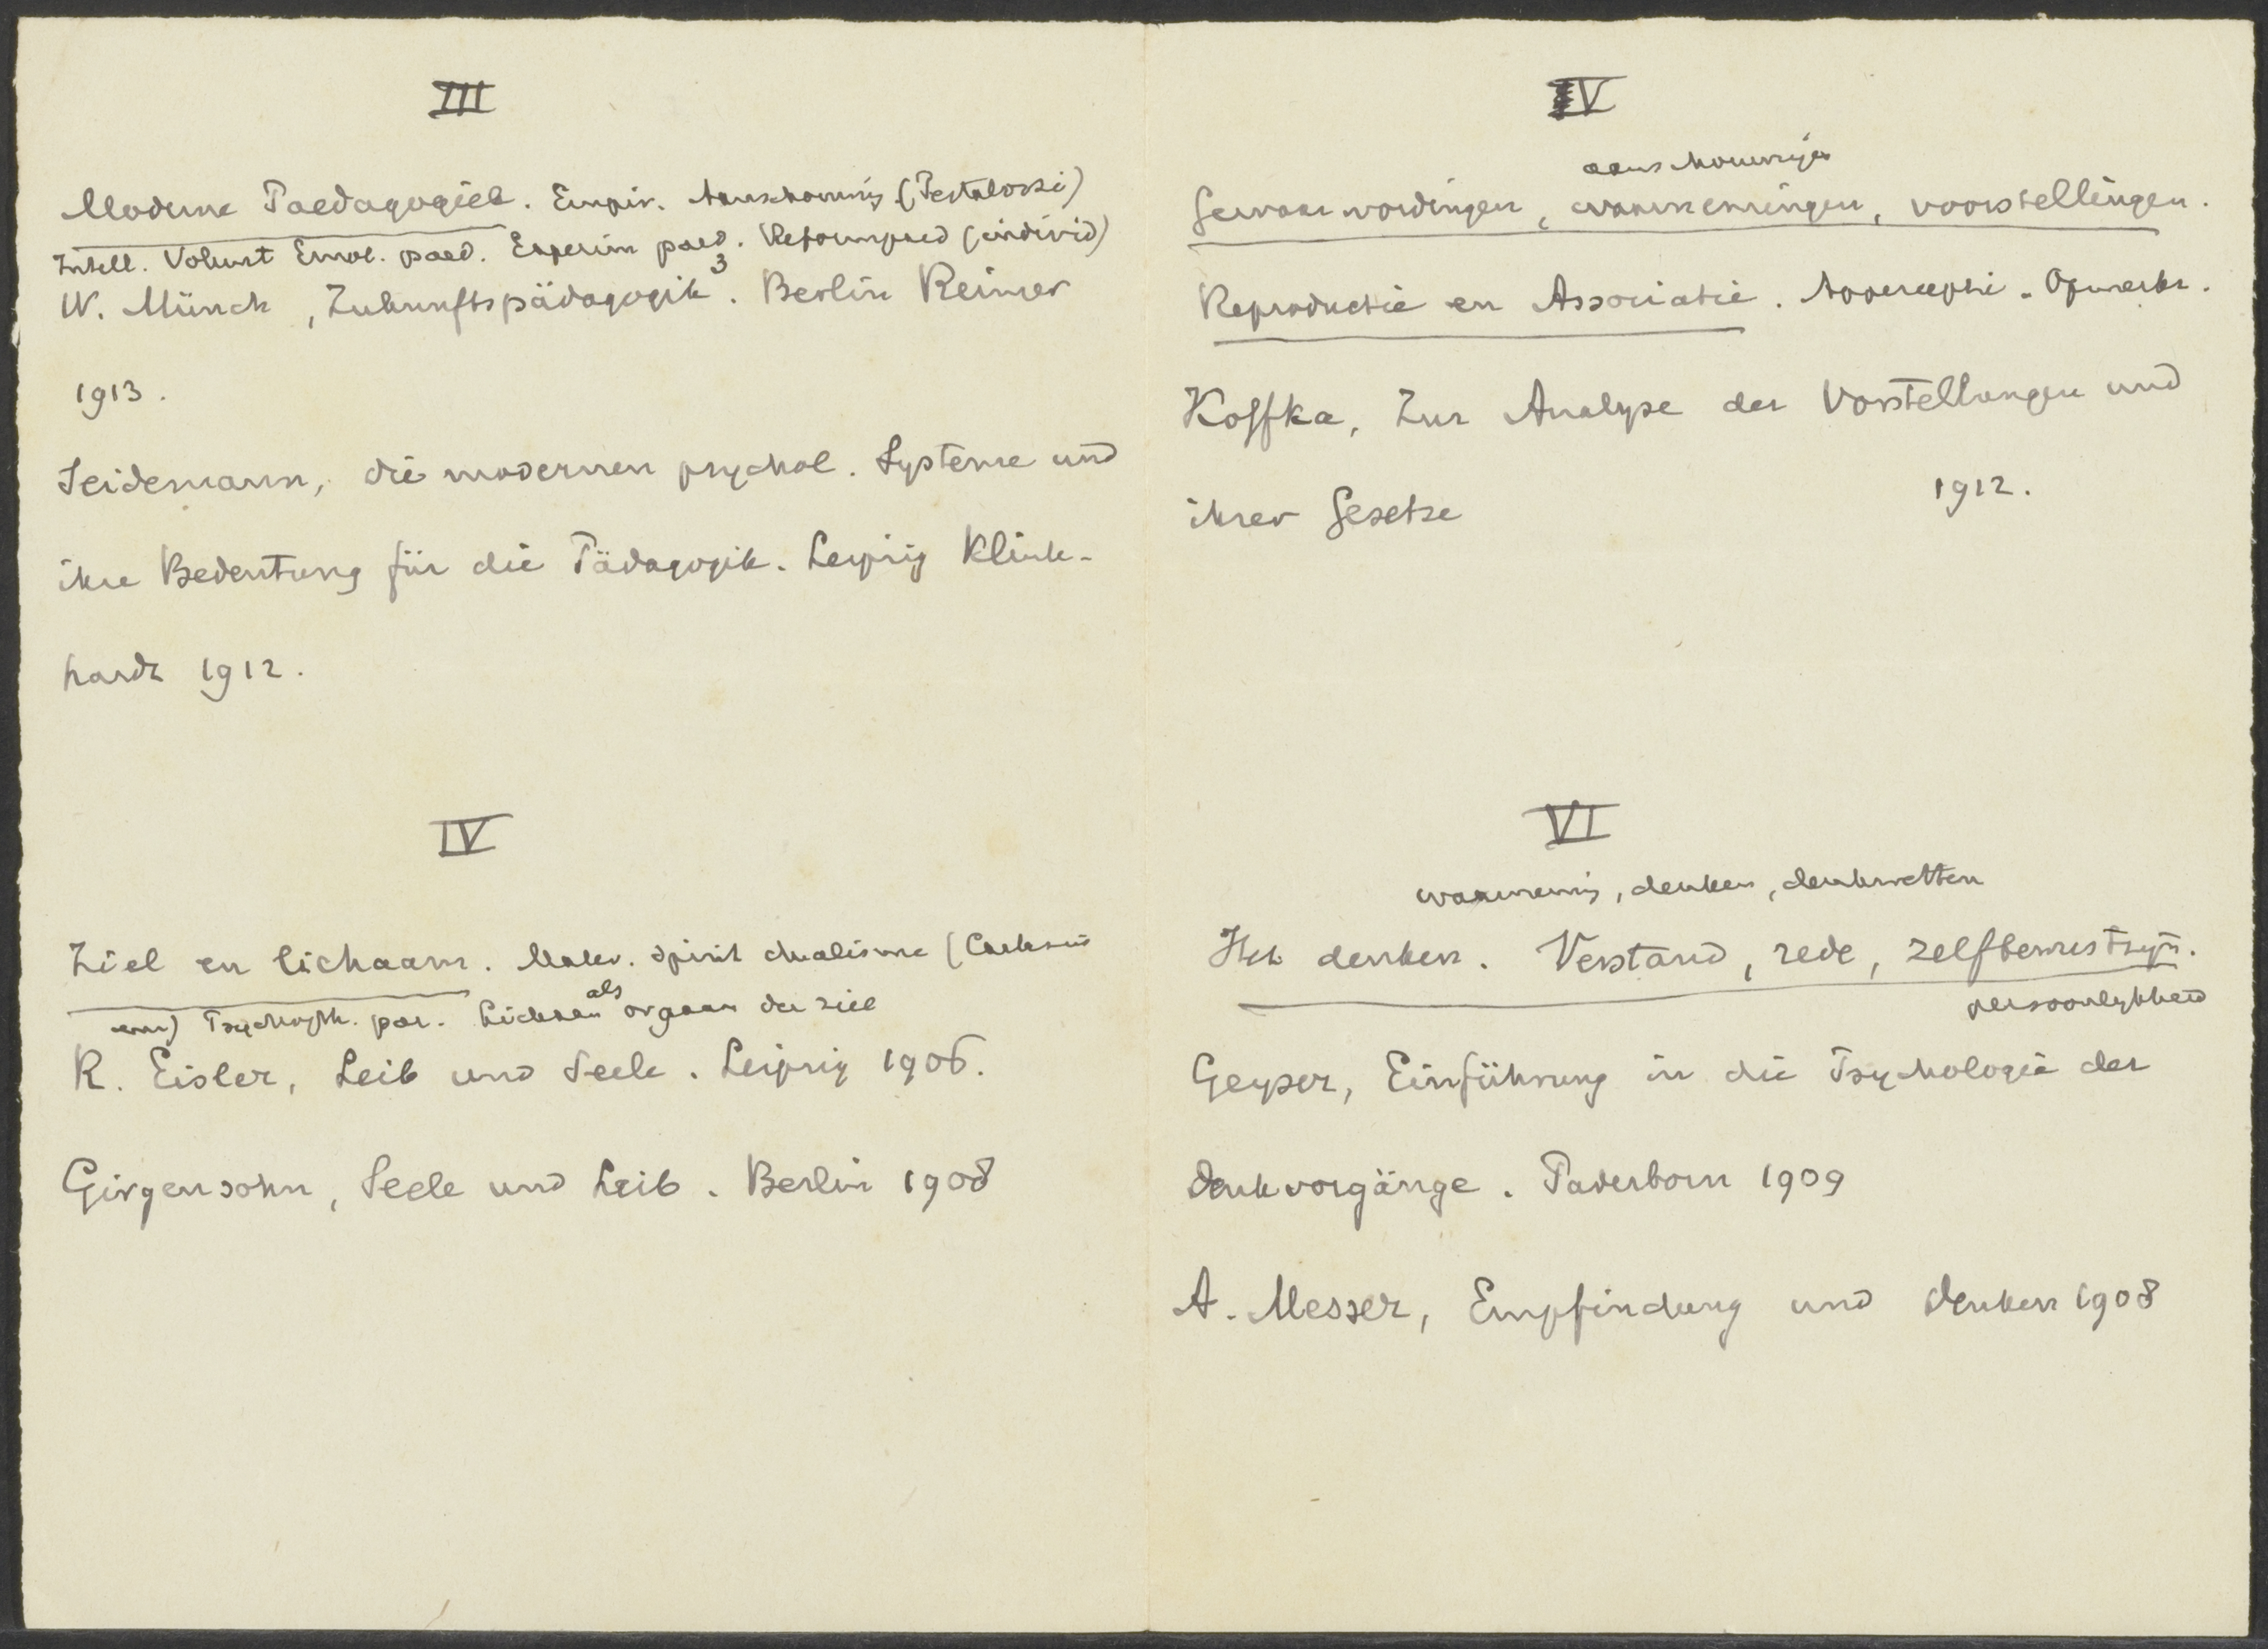 III
Moderne Paedagogiek. Empir. Aanschouwing (Pestalozzi)
Intell. Volunt Emot. paed. Experim paed. Reformpaed (individ)
W. Münch, Zukunftspädagogik³. Berlin Reimer
1913.
Seidemann, die modernen psychol. Systeme und
ihre Bedeutung für die Pädagogik. Leipzig Klink-
hardt 1912.
IV
Ziel en lichaam. Mater. Spirit dualisme (Cartesius
Psychoph. par. Lichaam als orgaan der ziel
R. Eisler, Leib und Seele. Leipzig 1906.
Girgensohn, Seele und Leib. Berlin 1908
IV
aanschouwingen
Gewaarwordingen, waarnemingen, voorstellingen.
Reproductie en Associatie. Apperceptie. Opmerkz.
Koffka, Zur Analyse der Vorstellungen und
ihrer Gesetze 1912.
VI
waarneming, denken, denkwetten
Het denken. Verstand, rede, zelfbewustzijn.
persoonlykheid
Geyser, Einführung in die Psychologie der
Denkvorgänge. Paderborn 1909
A. Messer, Empfindung und Denken 1908